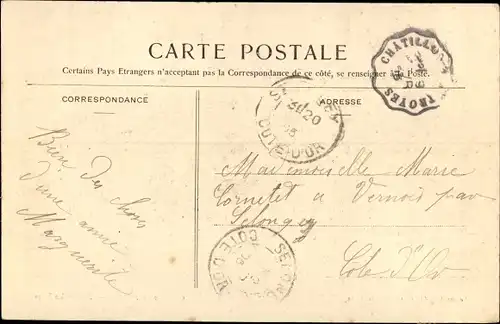 CARTE POSTALE
Certains Pays Etrangers n'acceptant pas la Correspondance de ce côté, se renseigner à la Poste.
CORRESPONDANCE
ADRESSE
CHATILLON
TROYES
20
COTE-D'OR
Bien des choses
d'une amie
Marguerite
Mademoiselle Marie
Cornetet à Vernois par
Selongey
Côte d'Or
SELONGEY
COTE D'OR